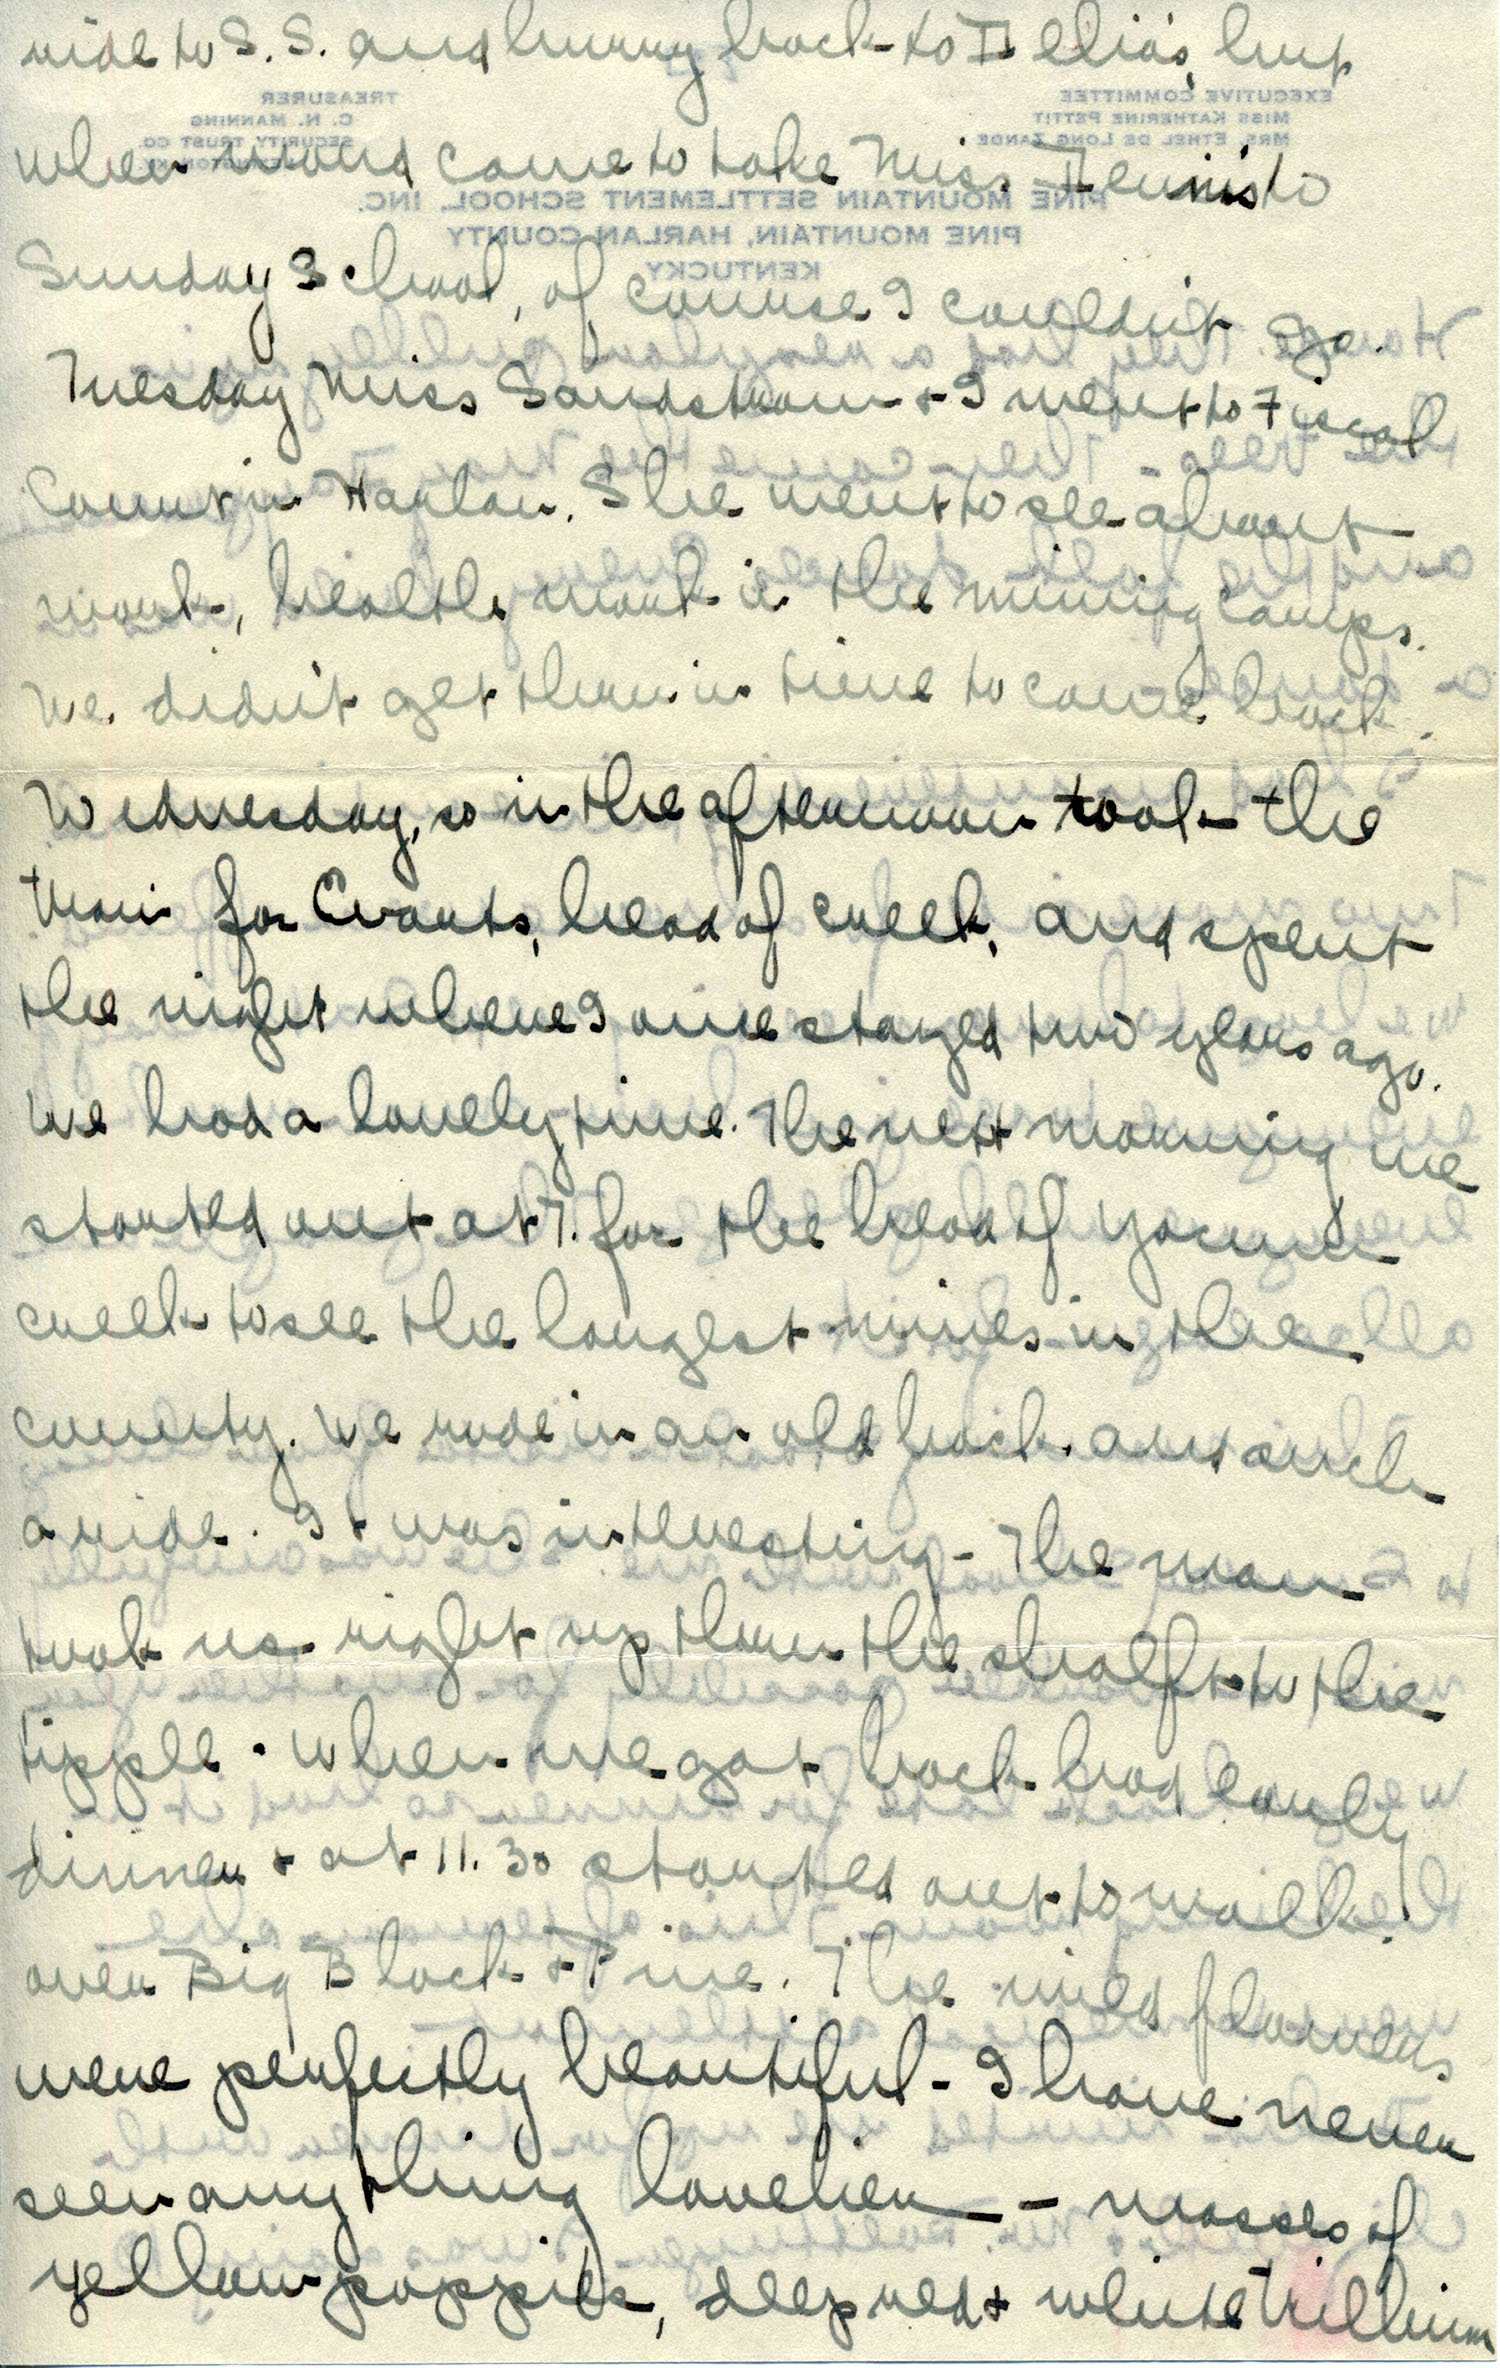 ride to S. S. and hurry back to Delia's, but
when word came to take Miss Dennis to
Sunday School, of course I couldn't go.
Tuesday Miss Sandstrom + I went to Fiscal
Court in Harlan. She went to see about
work, health work in the mining camps.
We didn't get thru in time to come back
Wednesday, so in the afternoon took the
train for Evarts, head of creek, and spent
the night where I once stayed two years ago.
We had a lovely time. The next morning we
started out at 7. for the head of Yocum
creek to see the longest mines in the
county. We rode in an old hack and such
a ride. It was interesting - The man
took us right up thru the shaft to the
tipple. When we got back had early
dinner + at 11.30 started out to walk
over Big Black + Pine. The wild flowers
were perfectly beautiful - I have never
seen anything lovelier - masses of
yellow poppies, deep red + white trillium
PINE MOUNTAIN SETTLEMENT SCHOOL, INC.
PINE MOUNTAIN, HARLAN COUNTY
KENTUCKY
EXECUTIVE COMMITTEE
MISS KATHERINE PETTIT
MRS. ETHEL DE LONG ZANDE
TREASURER
C. N. MANNING
SECURITY TRUST CO.